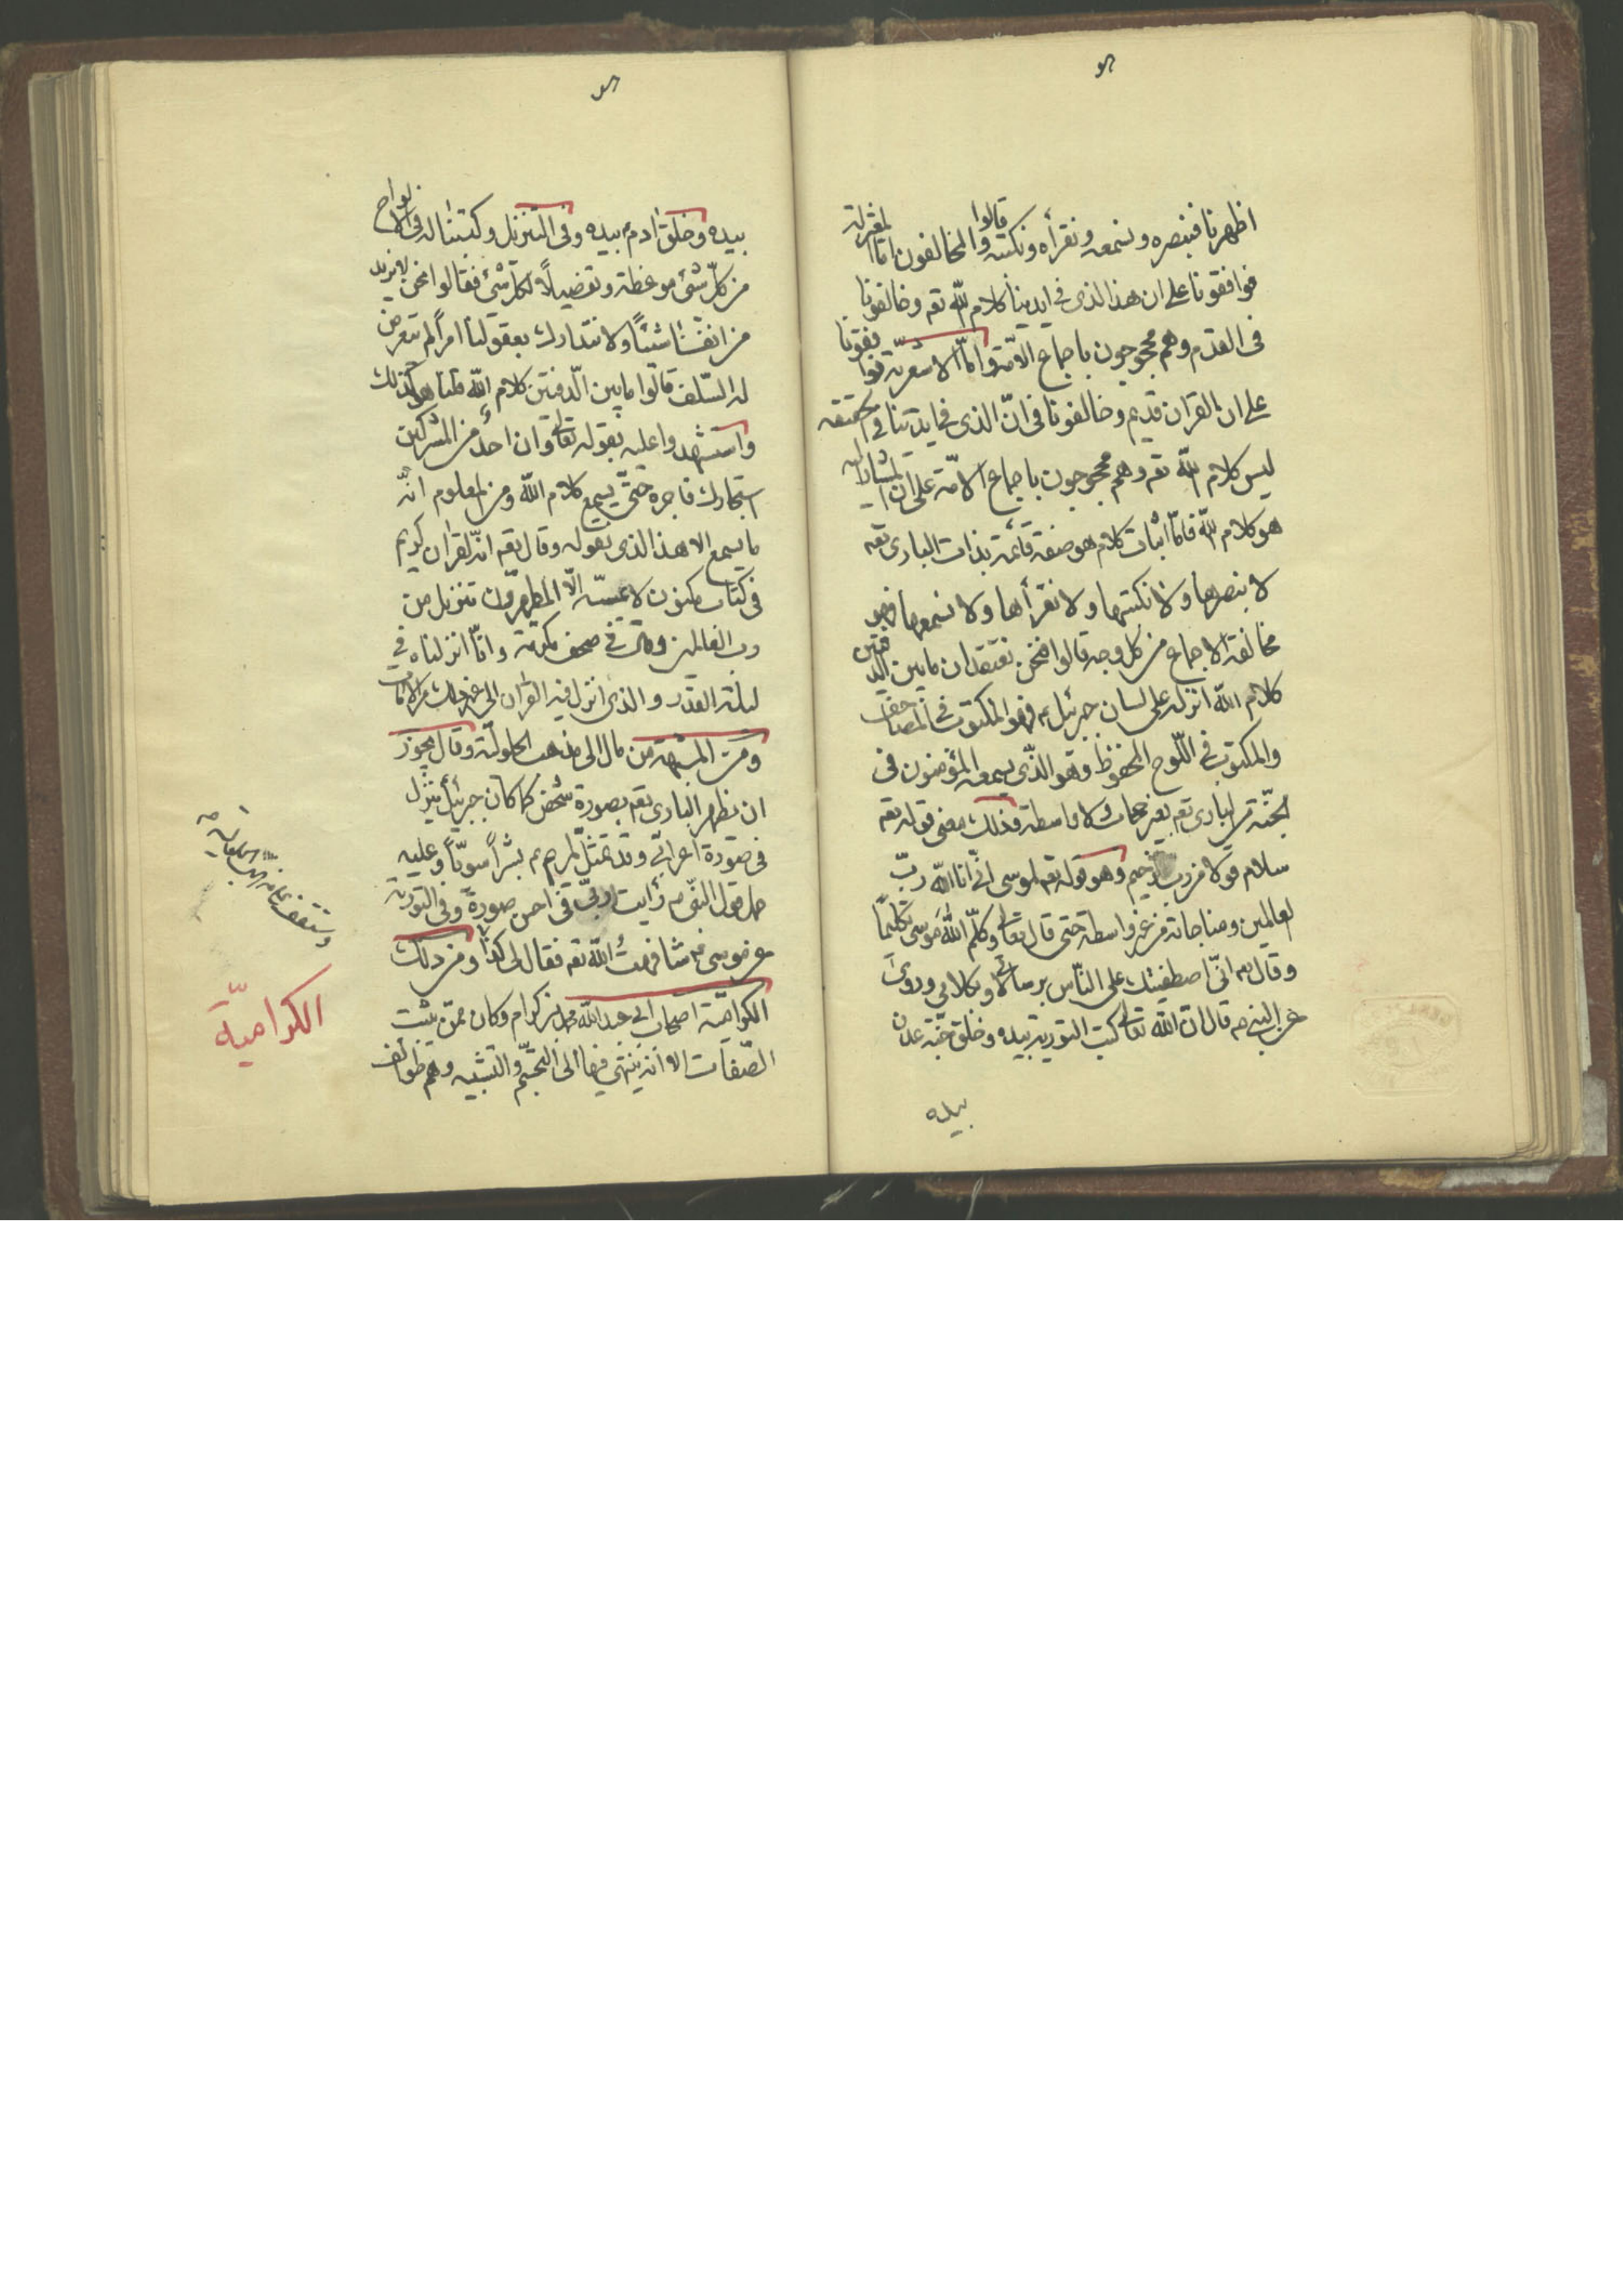 اظهرنا فنبصره ونسمعه ونقرأه ونكتبه قالوا والمخالفون اما المعتزلة
فوافقونا على ان هذا الذى فى ايدينا كلام الله تعه وخالفونا
فى القدم وهم محجوجون باجماع الامة واما الاشعرية فوافقونا
على ان القران قديم وخالفونا فى ان الذى فى ايدينا فى الحقيقه
ليس كلام الله تعه وهم محجوجون باجماع الامة على ان المشار اليه
هو كلام الله فاما اثبات كلام هو صفة قائمة بذات البارى تعه
لا نبصرها ولا نكتبها ولا نقرأها ولا نسمعها فهو
مخالفة الاجماع من كل وجه قالوا فنحن نعتقد ان ما بين الدفتين
كلام الله انزله على لسان جبرئيل ع فهو المكتوب فى المصاحف
والمكتوب فى اللوح المحفوظ وهو الذى يسمعه المؤمنون فى
الجنة من البارى تعه بغير حجاب ولا واسطة وذلك معنى قوله تعه
سلام قولا من رب رحيم وهو قوله تعه لموسى انى انا الله رب
العالمين ومناجاته من غير واسطة حتى قال تعالى وكلم الله موسى تكليماً
وقال انى اصطفيتك على الناس برسالاتى وبكلامى وروى
عن النبى ص قال ان الله تعالى كتب التورية بيده وخلق جنة عدن
بيده
بيده وخلق ادم بيده وفى التنزيل وكتبنا له فى الالواح
من كل شئ موعظة وتفصيلاً لكل شئ فقالوا فنحن لا نزيد
من انفسنا شيئاً ولا نتدارك بعقولنا امراً لم يتعرض
له السلف قالوا ما بين الدفتين كلام الله قلنا هو كذلك
واستشهدوا عليه بقوله تعالى وان احد من المشركين
استجارك فاجره حتى يسمع كلام الله ومن المعلوم انه
ما يسمع الا هذا الذى نقوله وقال تعه انه لقران كريم
فى كتاب مكنون لا يمسه الا المطهرون تنزيل من
رب العالمين وقال فى صحف مكرمة وانا انزلناه فى
ليلة القدر والذى انزل فيه القران الى غير ذلك من الايات
ومن المشبهة من مال الى مذهب الحلولية وقال يجوز
ان يظهر البارى تعه بصورة شخص كما كان جبرئيل ينزل
فى صورة اعرابى وقد تمثل لمريم ع بشراً سوياً وعليه
حمل قول النبى ص رأيت ربى فى احسن صورة وفى التورية
عن موسى ع شافهت الله تعه فقال لى كذا ومن ذلك
الكرامية اصحاب ابى عبدالله محمد بن كرام وكان ممن يثبت
الصفات الا انه ينتهى فيها الى التجسم والتشبيه وهم طوائف
الكرامية